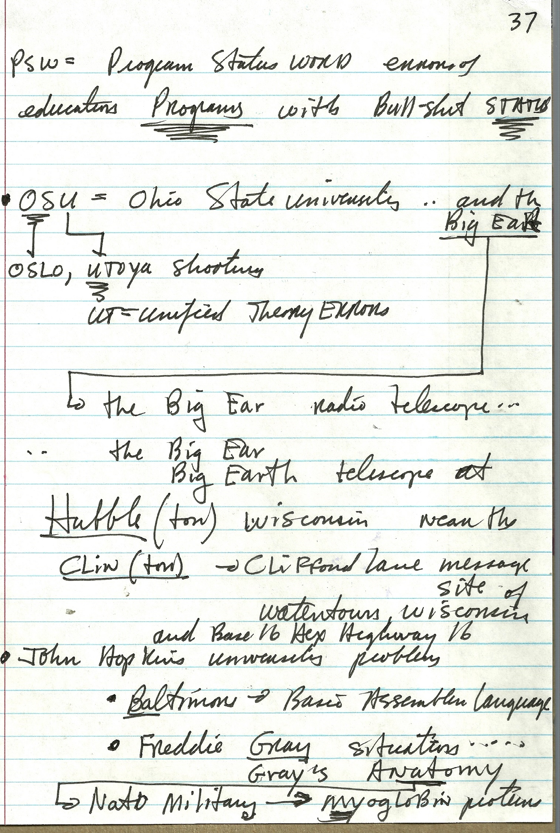 37
PSW = Program Status WORD errors of
education Programs with Bull-shit STATUS
• OSU = Ohio State university .. and the
Big EaR
OSLO, UTOya shooting
UT = Unified Theory ERRORS
→ the Big Ear radio telescope...
.. the Big Ear
Big Earth telescope at
Hubble (ton) Wisconsin near the
CLin (ton) → Clifford Lane message
site of
Watertown, Wisconsin
and Base 16 Hex Highway 16
• John Hopkins university problem
• Baltimore → Basic Assembler Language
• Freddie Gray situation .....
Gray's Anatomy
→ Nato Military → myogloBin protein